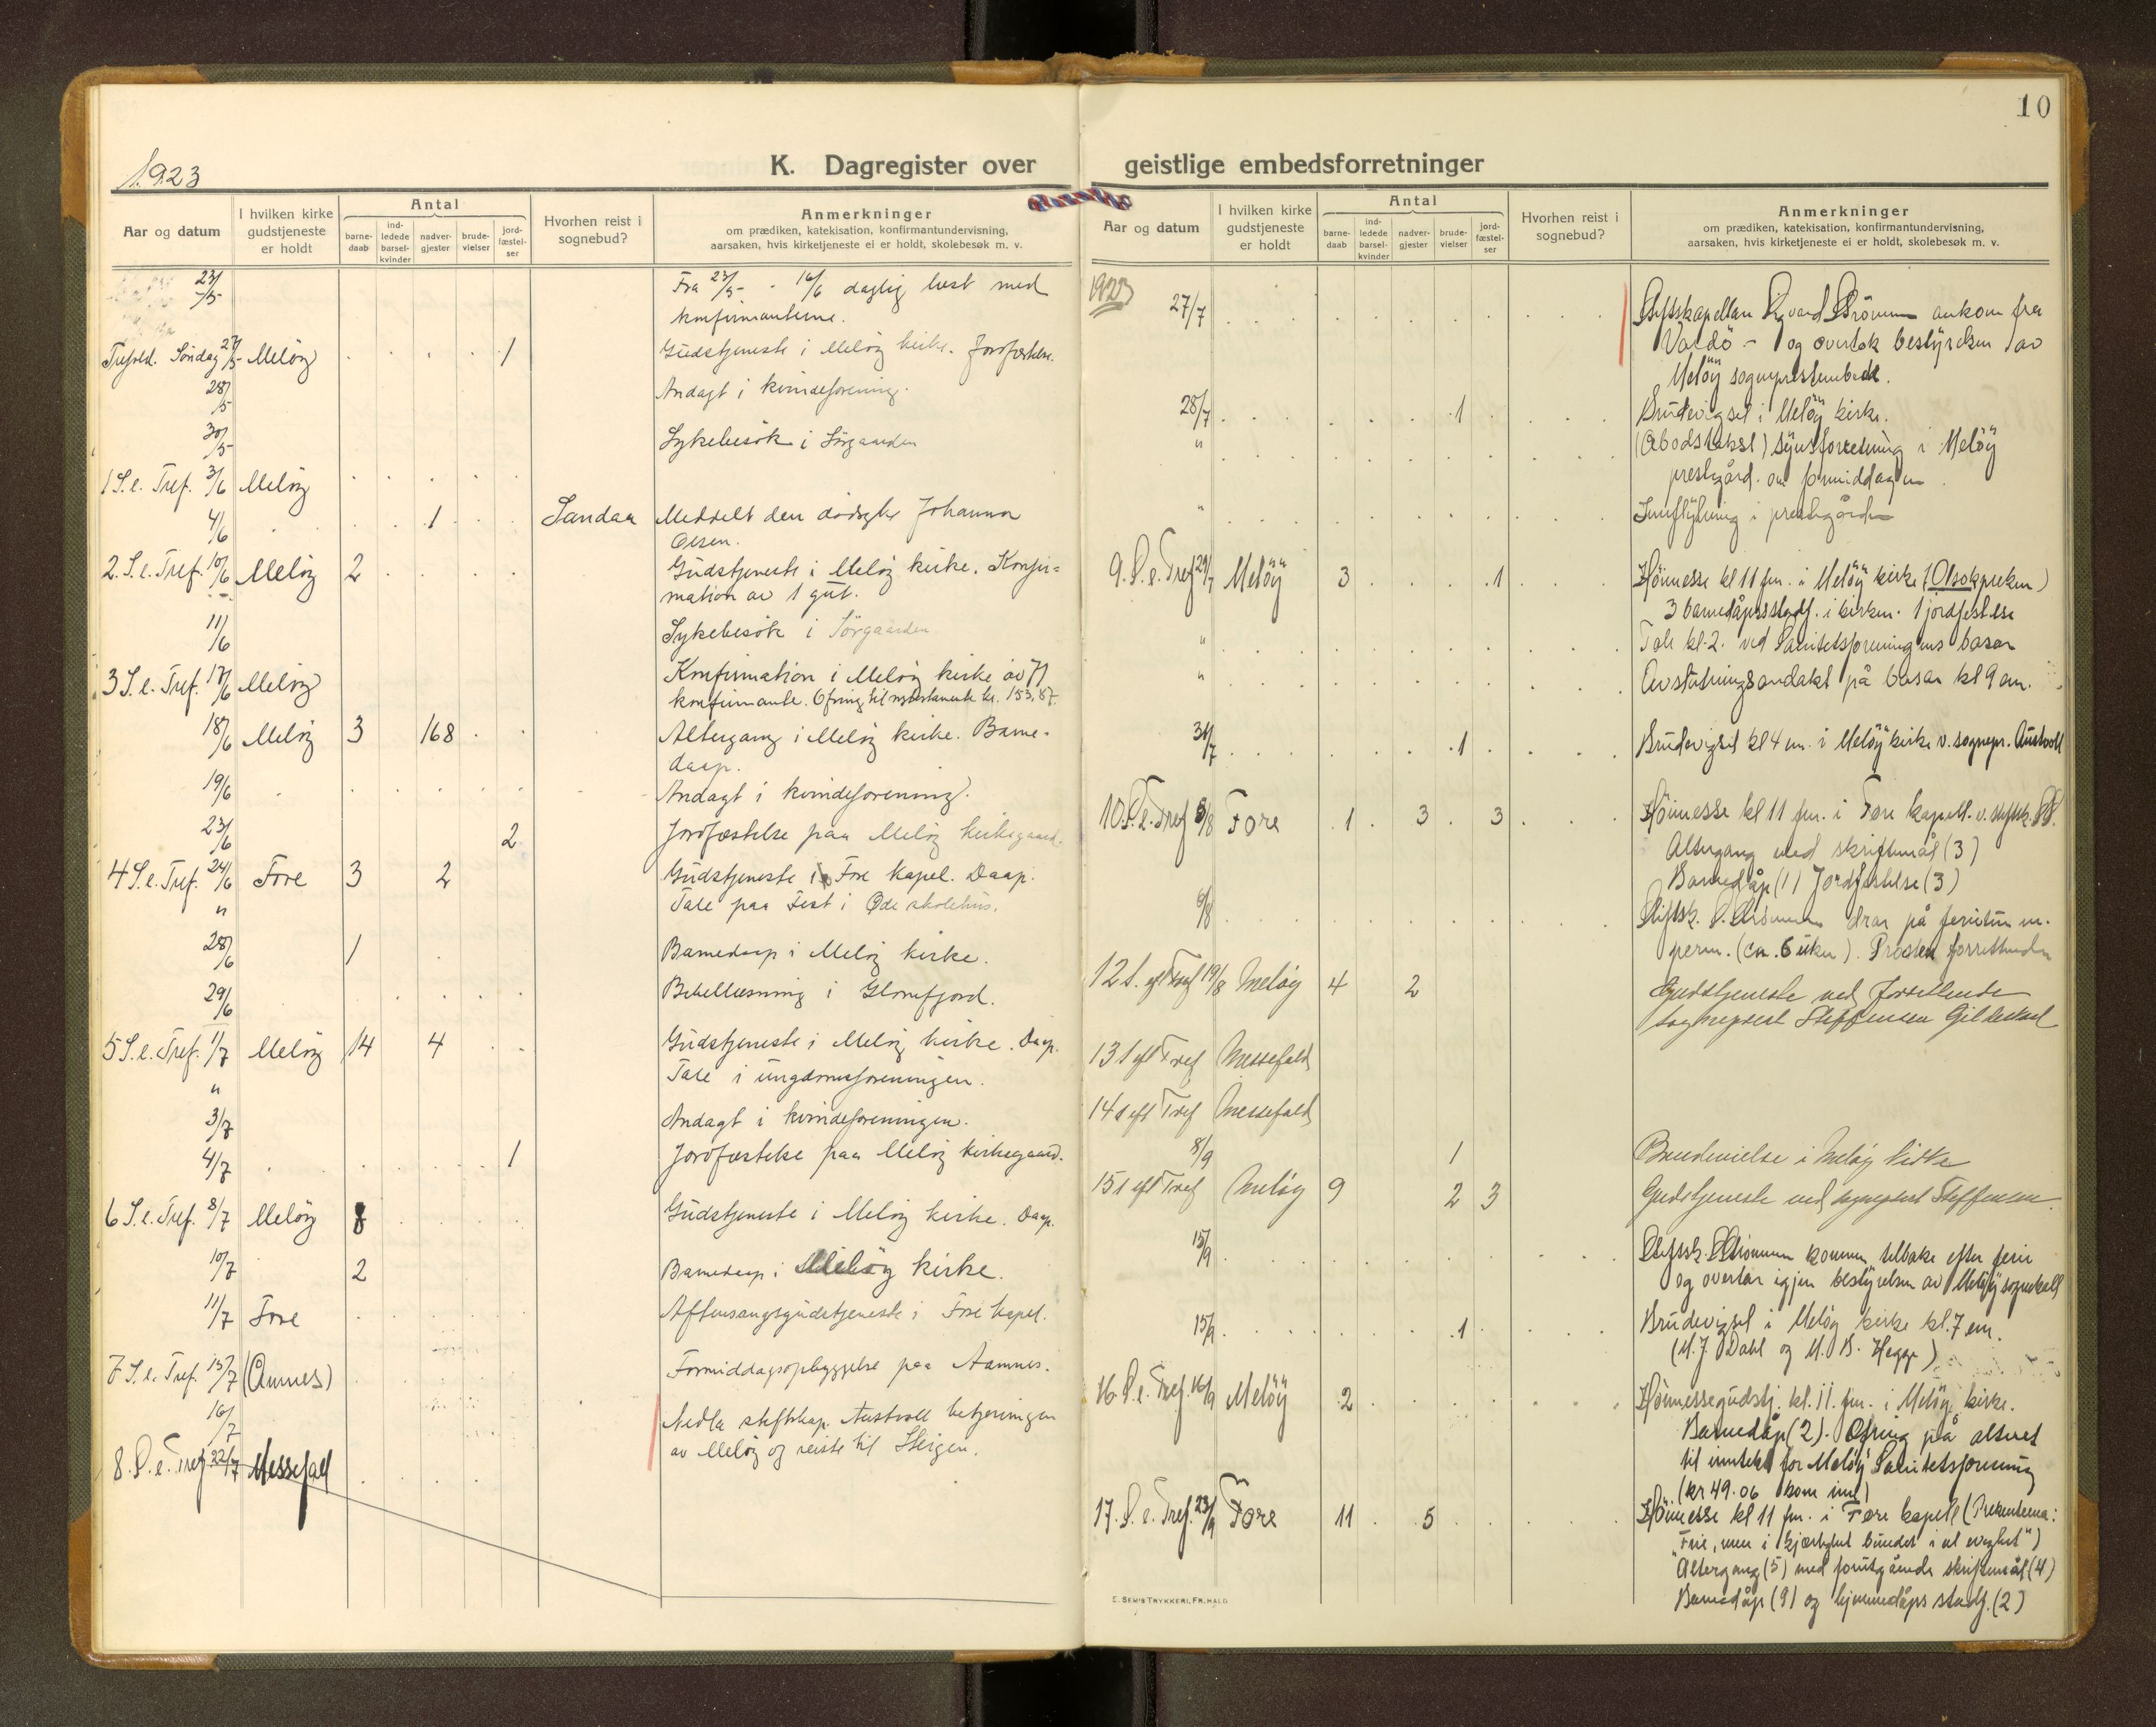 10
1923
K. Dagregister over geistlige embedsforretninger
Aar og datum
I hvilken kirke gudstjeneste er holdt
Antal
barne-daab
ind-ledede barsel-kvinder
nadver-gjester
brude-vielser
jord-fæstel-ser
Hvorhen reist i sognebud?
Anmerkninger
om prædiken, katekisation, konfirmantundervisning,
aarsaken, hvis kirketjeneste ei er holdt, skolebesøk m. v.
23/5 Fra 23/5 - 16/6 daglig læst med
konfirmanterne.
Trefold. Søndag 27/5 Meløy 1 Gudstjeneste i Meløy kirke. Jordfæstelse.
28/5 Andagt i kvindeforening.
30/5 Sykebesøk i Sørgaarden
1 S. e. Tref. 3/6 Meløy
4/6 1 Sandaa Meddelt den dødssyke Johanna
Olsen.
2. S. e. Tref. 10/6 Meløy 2 Gudstjeneste i Meløy kirke. Konfir=
mation av 1 gut.
11/6 Sykebesøk i Sørgaarden
3 S. e. Tref. 17/6 Meløy Konfirmation i Meløy kirke av 71
konfirmanter. Ofring til nytestamente kr. 153,87.
18/6 Meløy 3 168 Altergang i Meløy kirke. Barne-
daap.
19/6 Andagt i kvindeforening.
23/6 2 Jordfæstelse paa Meløy kirkegaard.
4 S. e. Tref. 24/6 Fore 3 2 Gudstjeneste i Fore Kapel. Daap.
" Tale paa Fest i Øde skolehus.
28/6 1 Barnedaap i Meløy kirke.
29/6 Bibellæsning i Glomfjord.
5 S. e. Tref. 1/7 Meløy 14 4 Gudstjeneste i Meløy kirke. Daap.
" Tale i ungdomsforeningen.
3/7 Andagt i kvindeforeningen.
4/7 1 Jordfæstelse paa Meløy kirkegaard.
6 S. e. Tref. 8/7 Meløy 8 Gudstjeneste i Meløy kirke. Daap.
10/7 2 Barnedaap i Meløy kirke.
11/7 Fore Aftensangsgudstjeneste i Fore kapel.
7 S. e. Tref. 15/7 (Amnes) Formiddagsopbyggelse paa Aamnes.
16/7 Nedla stiftskap. Austvoll betjeningen
av Meløy og reiste til Steigen.
8. S. e. Tref. 22/7 Messefall
Aar og datum
I hvilken kirke gudstjeneste er holdt
Antal
barne-daab
ind-ledede barsel-kvinder
nadver-gjester
brude-vielser
jord-fæstel-ser
Hvorhen reist i sognebud?
Anmerkninger
om prædiken, katekisation, konfirmantundervisning,
aarsaken, hvis kirketjeneste ei er holdt, skolebesøk m. v.
1923
27/7 Stiftskapellan Strömm ankom fra
Vardö - og overtok bestyrelsen av
Melöy sogneprestembede.
28/7 1 Brudevigsel i Melöy kirke.
" (Åbodstakst) synsforretning i Melöy
prestgård om formiddagen.
" Innflytning i prestegården
9. S. e. Tref 29/7 Melöy 3 1 Höimesse kl 11 fm. i Melöy kirke (Olsokpreken)
3 barnedåpsstadf. i kirken. 1 jordfestelse
" Tale kl. 2. ved Sanitetsforeningens basar
" Avslutningsandakt på basar kl 9 em.
31/7 1 Brudevigsel kl 4 em. i Melöy kirke v. sognepr. Austvoll
10. S. e. Tref 5/8 Fore 1 3 3 Höimesse kl 11 fm. i Fore kapell. v. stiftsk. SS.
Altergang med skriftemål (3)
Barnedåp (1) Jordfestelse (3)
6/8 Stiftsk. S. Strömm drar på ferietur m.
perm. (ca. 6 uker). Prosten forrettende
12 s. eft Tref 19/8 Meløy 4 2 Gudstjeneste ved forrettende
sogneprest Steffensen Gildeskaal
13 s eft Tref Messefald
14 s eft Tref Messefald
8/9 1 Brudevielse i Meløy kirke
15 s eft Tref Meløy 9 2 3 Gudstjeneste ved sogneprest Steffensen.
15/9 Stiftsk. S. Strömm kommer tilbake efter ferie
og overtar igjen bestyrelsen av Melöy sognekall
15/9 1 Brudevigsel i Melöy kirke kl. 7 em.
(M. J. Dahl og M. B. Hegge)
16. S. e. Tref. 16/9 Melöy 2 Höimessegudstj. kl. 11 fm. i Melöy kirke.
Barnedåp (2). Ofring på alteret
til inntekt for Melöy Sanitetsforening
(kr 49.06 kom inn)
17. S. e. Tref. 23/9 Fore 11 5 Höimesse kl 11 fm. i Fore kapell (Prekentema:
"Frie, men i kjærlighet bundet i al evighet")
Altergang (5) med forutgående skriftemål (4)
Barnedåp (9) og hjemmedåps stadf. (2)
E. SEM'S TRYKKERI, FR.HALD